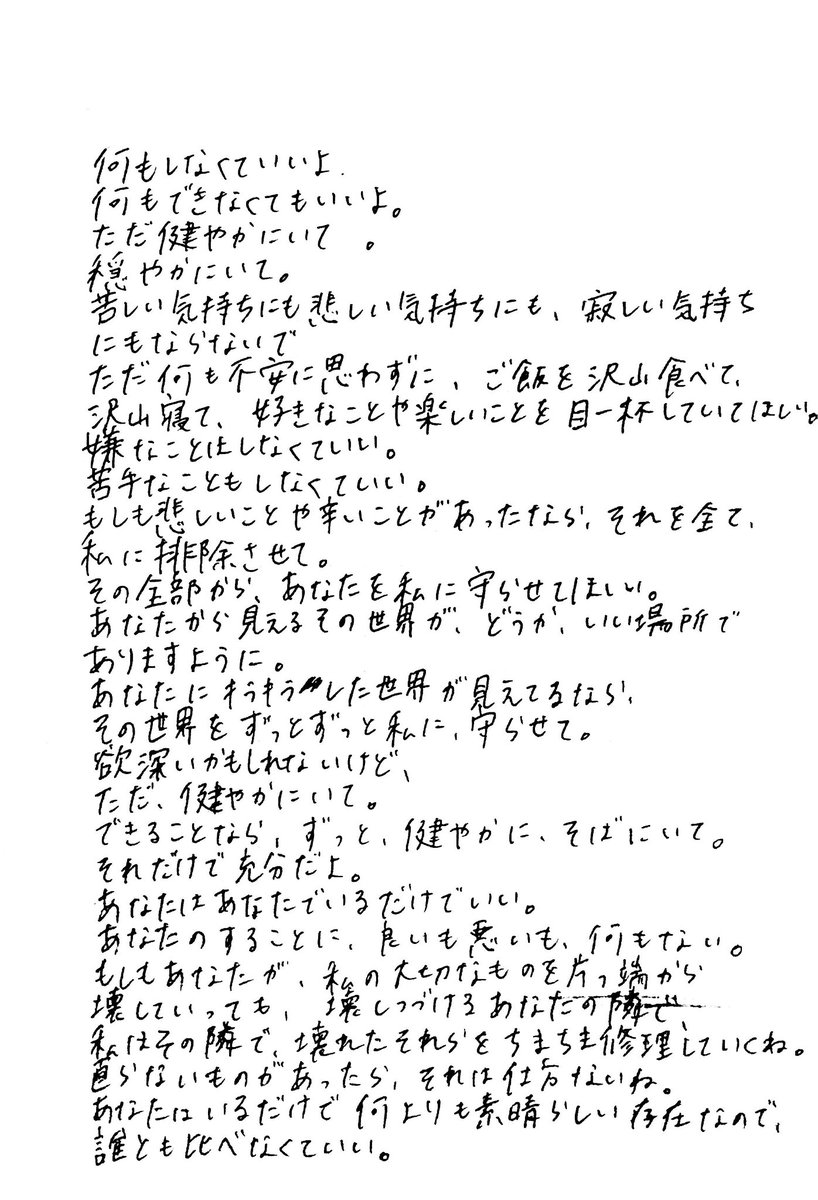 何もしなくていいよ.
何もできなくてもいいよ。
ただ健やかにいて 。
穏やかにいて。
苦しい気持ちにも悲しい気持ちにも、寂しい気持ち
にもならないで
ただ何も不安に思わずに、ご飯を沢山食べて、
沢山寝て、好きなことや楽しいことを目一杯していてほしい。
嫌なことはしなくていい。
苦手なこともしなくていい。
もしも悲しいことや辛いことがあったなら、それを全て、
私に排除させて。
その全部から、あなたを私に守らせてほしい。
あなたから見えるその世界が、どうか、いい場所で
ありますように。
あなたにキラキラした世界が見えてるなら、
その世界をずっとずっと私に、守らせて。
欲深いかもしれないけど、
ただ、健やかにいて。
できることなら、ずっと、健やかに、そばにいて。
それだけで充分だよ。
あなたはあなたでいるだけでいい。
あなたのすることに、良いも悪いも、何もない。
もしもあなたが、私の大切なものを片っ端から
壊していっても、壊しつづけるあなたの隣で、
私はその隣で、壊れたそれらをちまちま修理していくね。
直らないものがあったら、それは仕方ないね。
あなたはいるだけで何よりも素晴らしい存在なので、
誰とも比べなくていい。